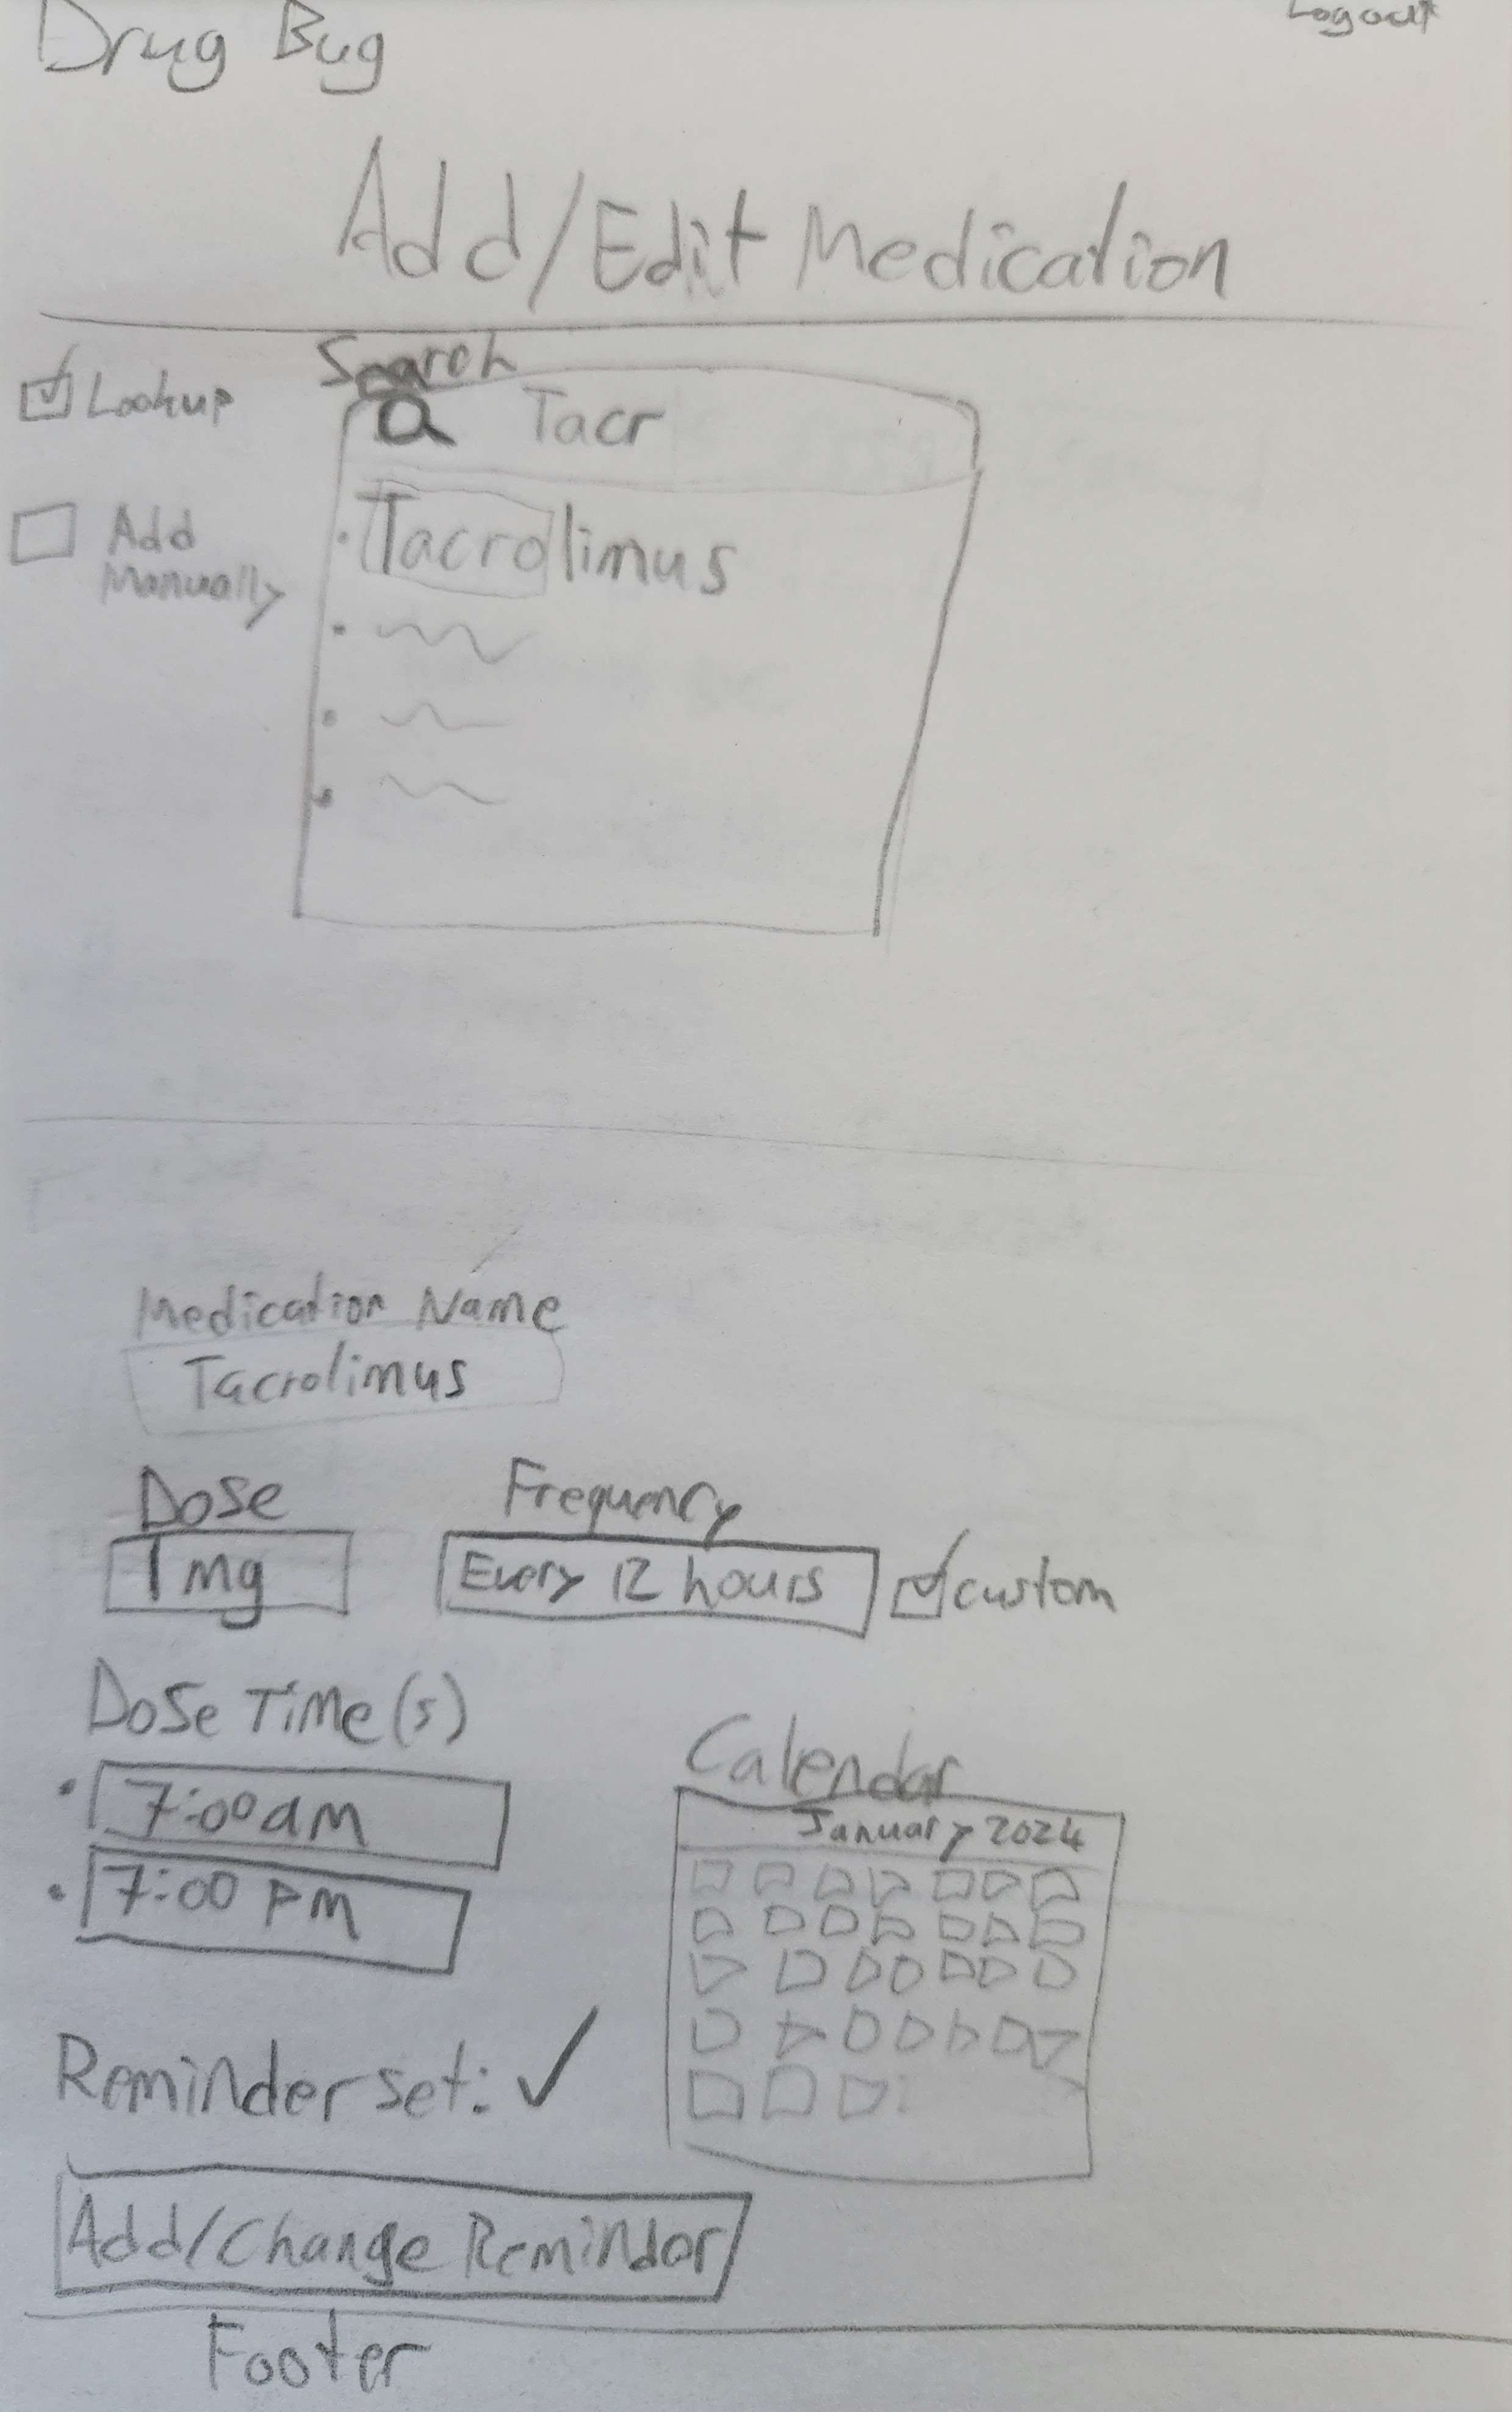 Drug Bug
Logout
Add/Edit Medication
Lookup
Search
Tacr
Add
Manually
Tacrolimus
Medication Name
Tacrolimus
Dose
Frequency
1 mg
Every 12 hours
custom
Dose Time(s)
7:00 am
7:00 PM
Calendar
January 2024
Reminder set: ✓
Add/Change Remindor
Footer